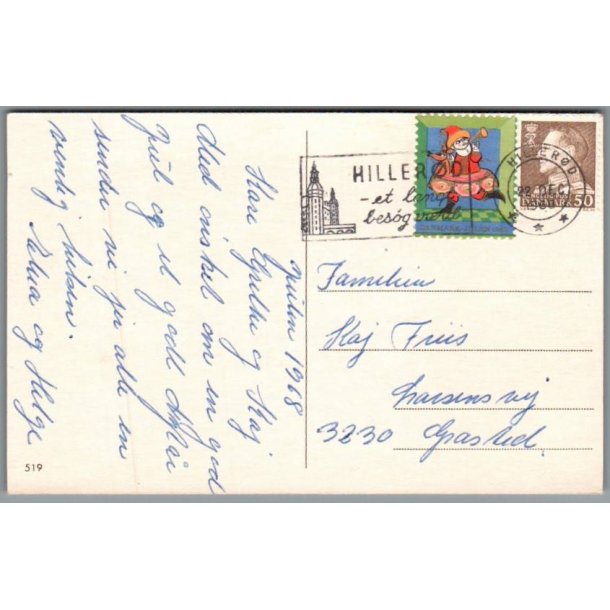 HILLERØD
- et langt
besøg værd
HILLERØD
22 DEC
DANMARK 50
Julen 1968
Kære Grethe og Kaj
Med ønsket om en god
Jul og et godt Nytår
sender vi jer alle en
venlig hilsen.
og Helge
Familien
Kaj Friis
Larsensvej
3230 Græsted.
519